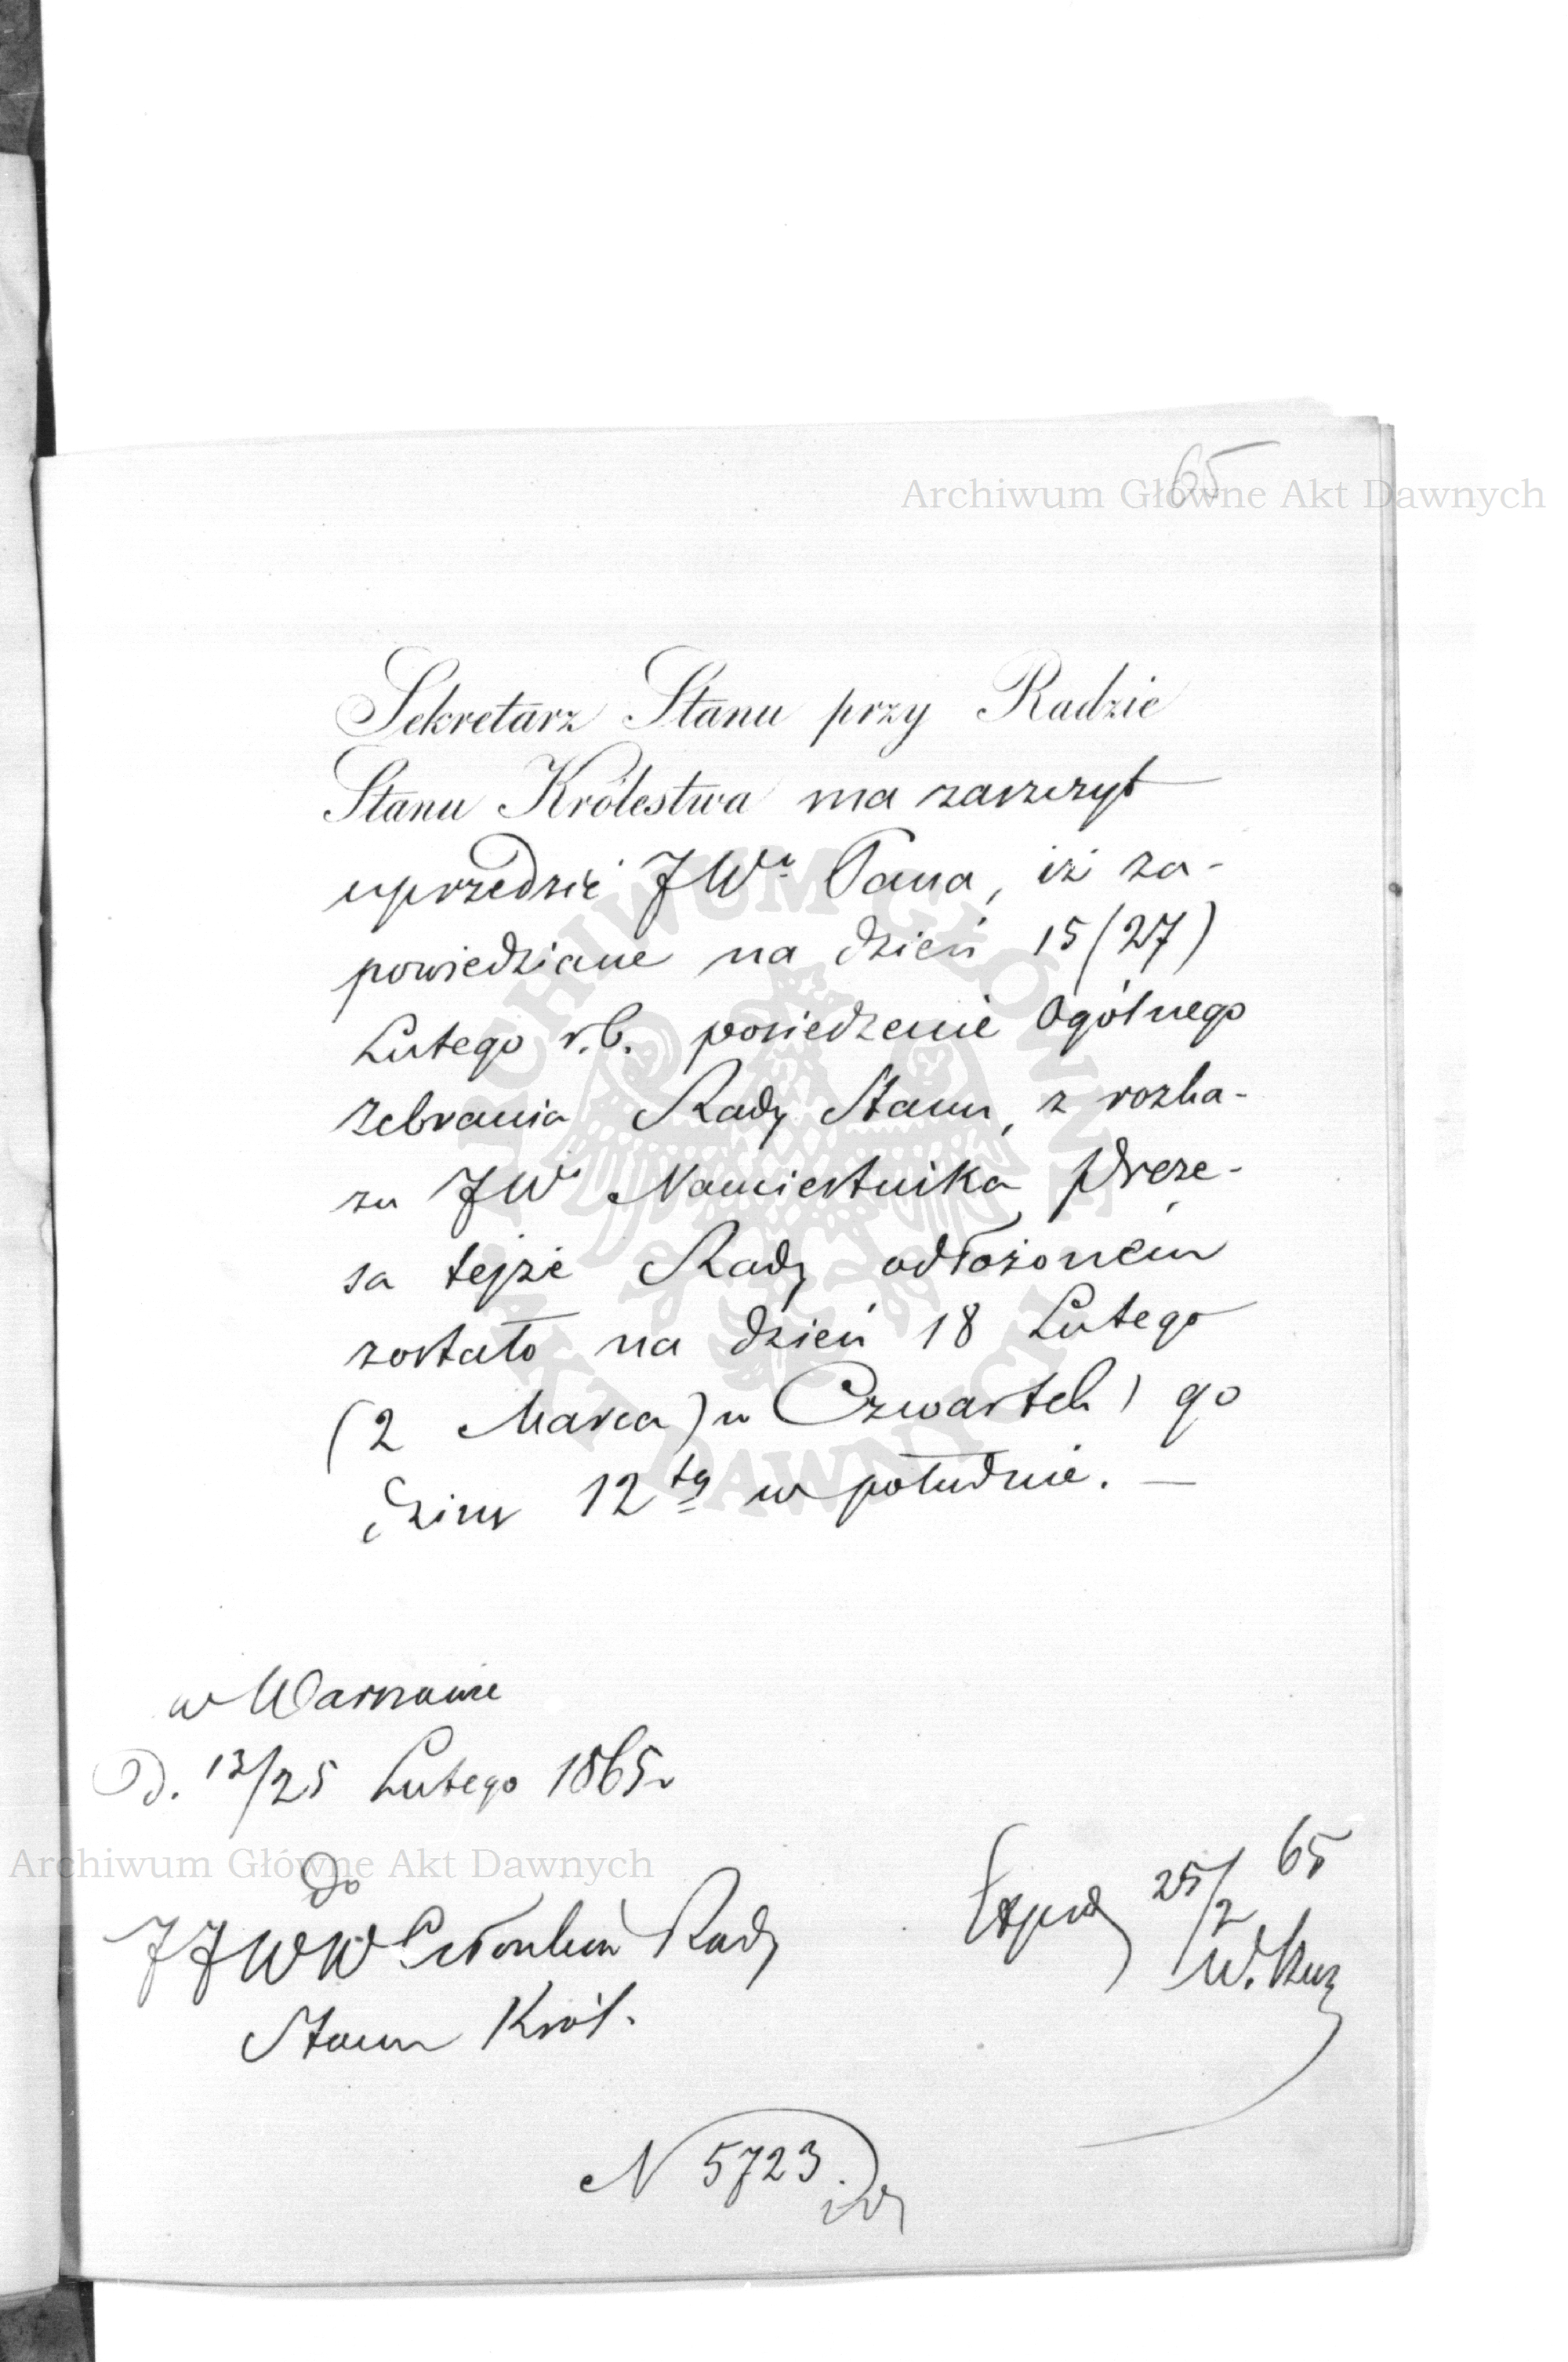 65
Archiwum Główne Akt Dawnych
Sekretarz Stanu przy Radzie
Stanu Królestwa ma zaszczyt
uprzedzić JWo Pana, iż za-
powiedziane na dzień 15 (27)
Lutego r.b. posiedzenie Ogólnego
zebrania Rady Stanu, z rozka-
zu JW Namiestnika Preze-
sa tejże Rady odłożoném
zostało na dzień 18 Lutego
(2 Marca) w Czwartek, go
dzinę 12tą w południe. —
w Warszawie
D. 13/25 Lutego 1865 r
Archiwum Główne Akt Dawnych
Do
JJWW Członków Rady
Stanu Król.
Exped 25/2 65
N 5723
ARCHIWUM GŁÓWNE
AKT DAWNYCH